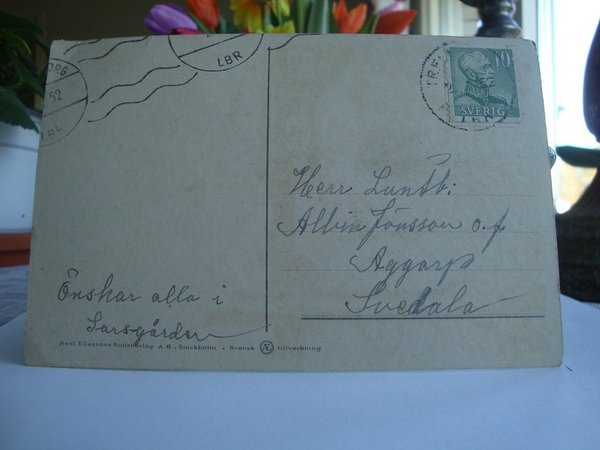 ORG
52
LBR
LBR
TRE
LBR
10
SVERIGE
Herr Lantb:
Albin Jönsson o.f
Aggarp
Svedala
Önskar alla i
Larsgården
Axel Eliassons Konstförlag A.B., Stockholm • Svensk Æ tillverkning